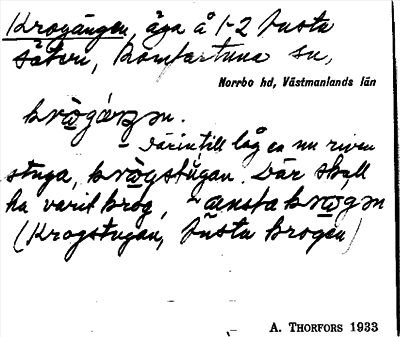 Krogängen, äga å 1-2 Justa
säteri, Romfartuna sn,
Norrbo hd, Västmanlands län
krògǽŋən.
– därintill låg en nu riven
stuga, krògstùgan. Där skall
ha varit krog, ~
(Krogstugan, Justa krogen)
A. THORFORS 1933